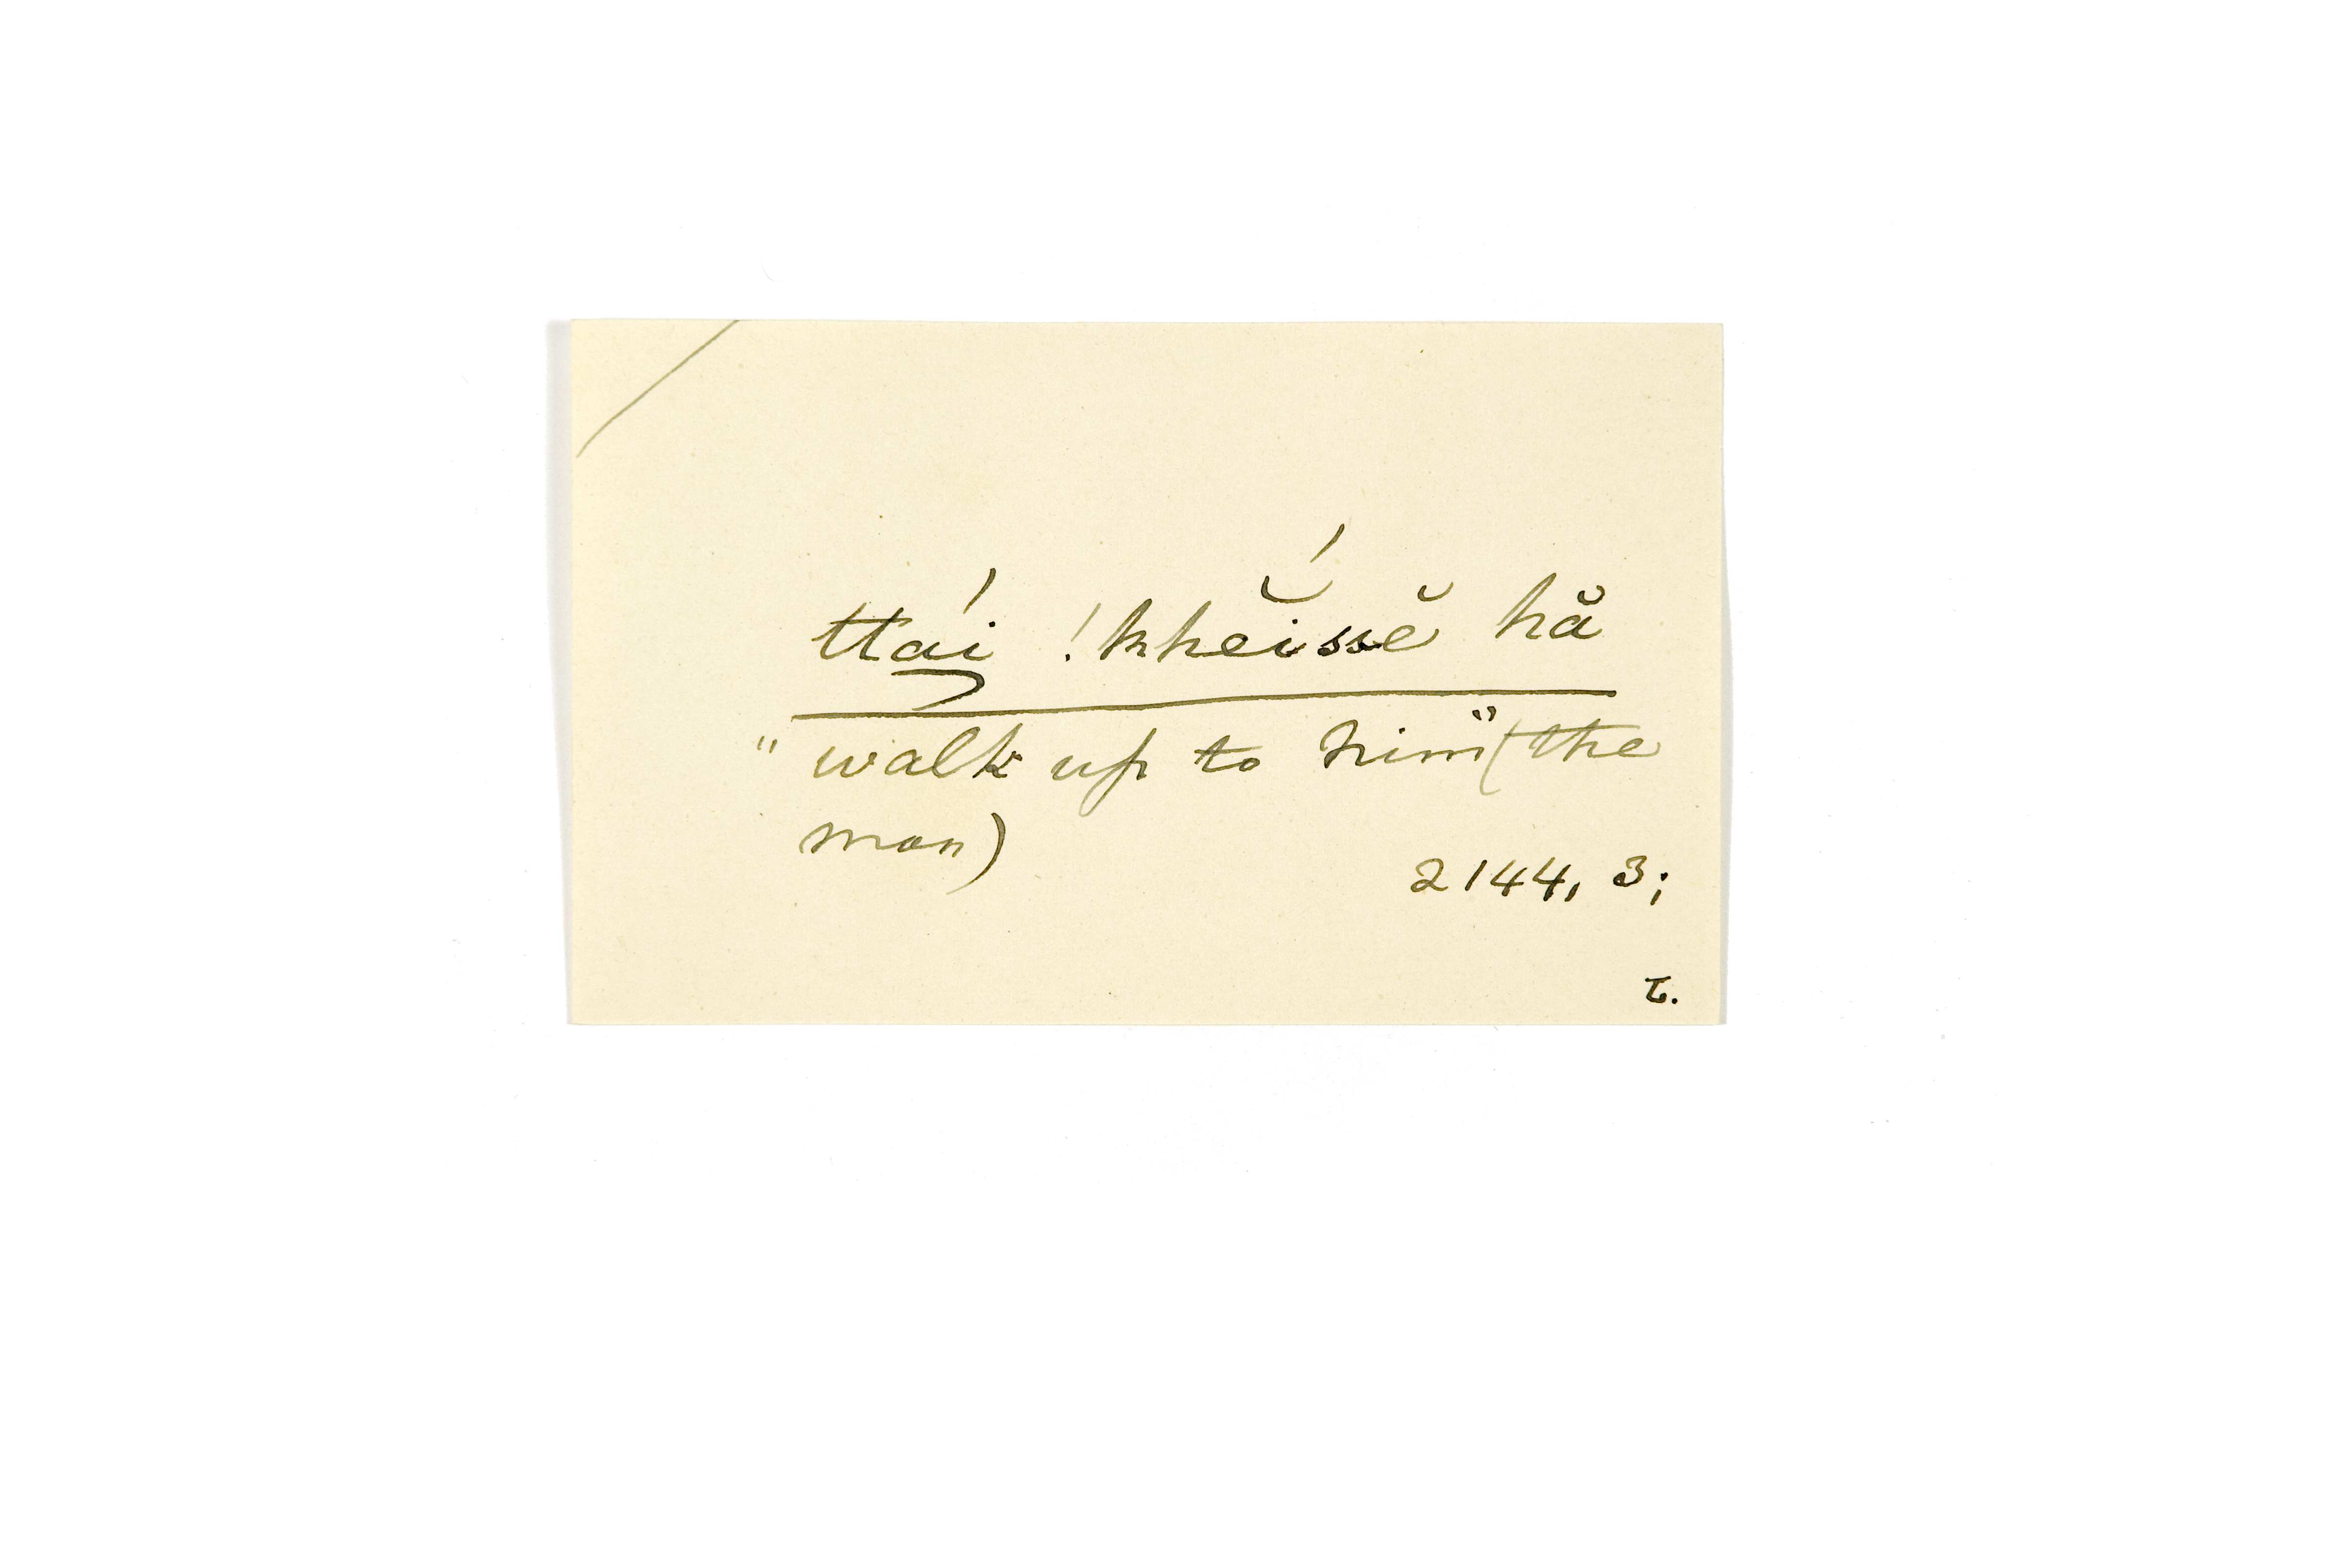 ttái !khĕ́issĕ hă
"walk up to him" (the
man)
2144, 3;
T.